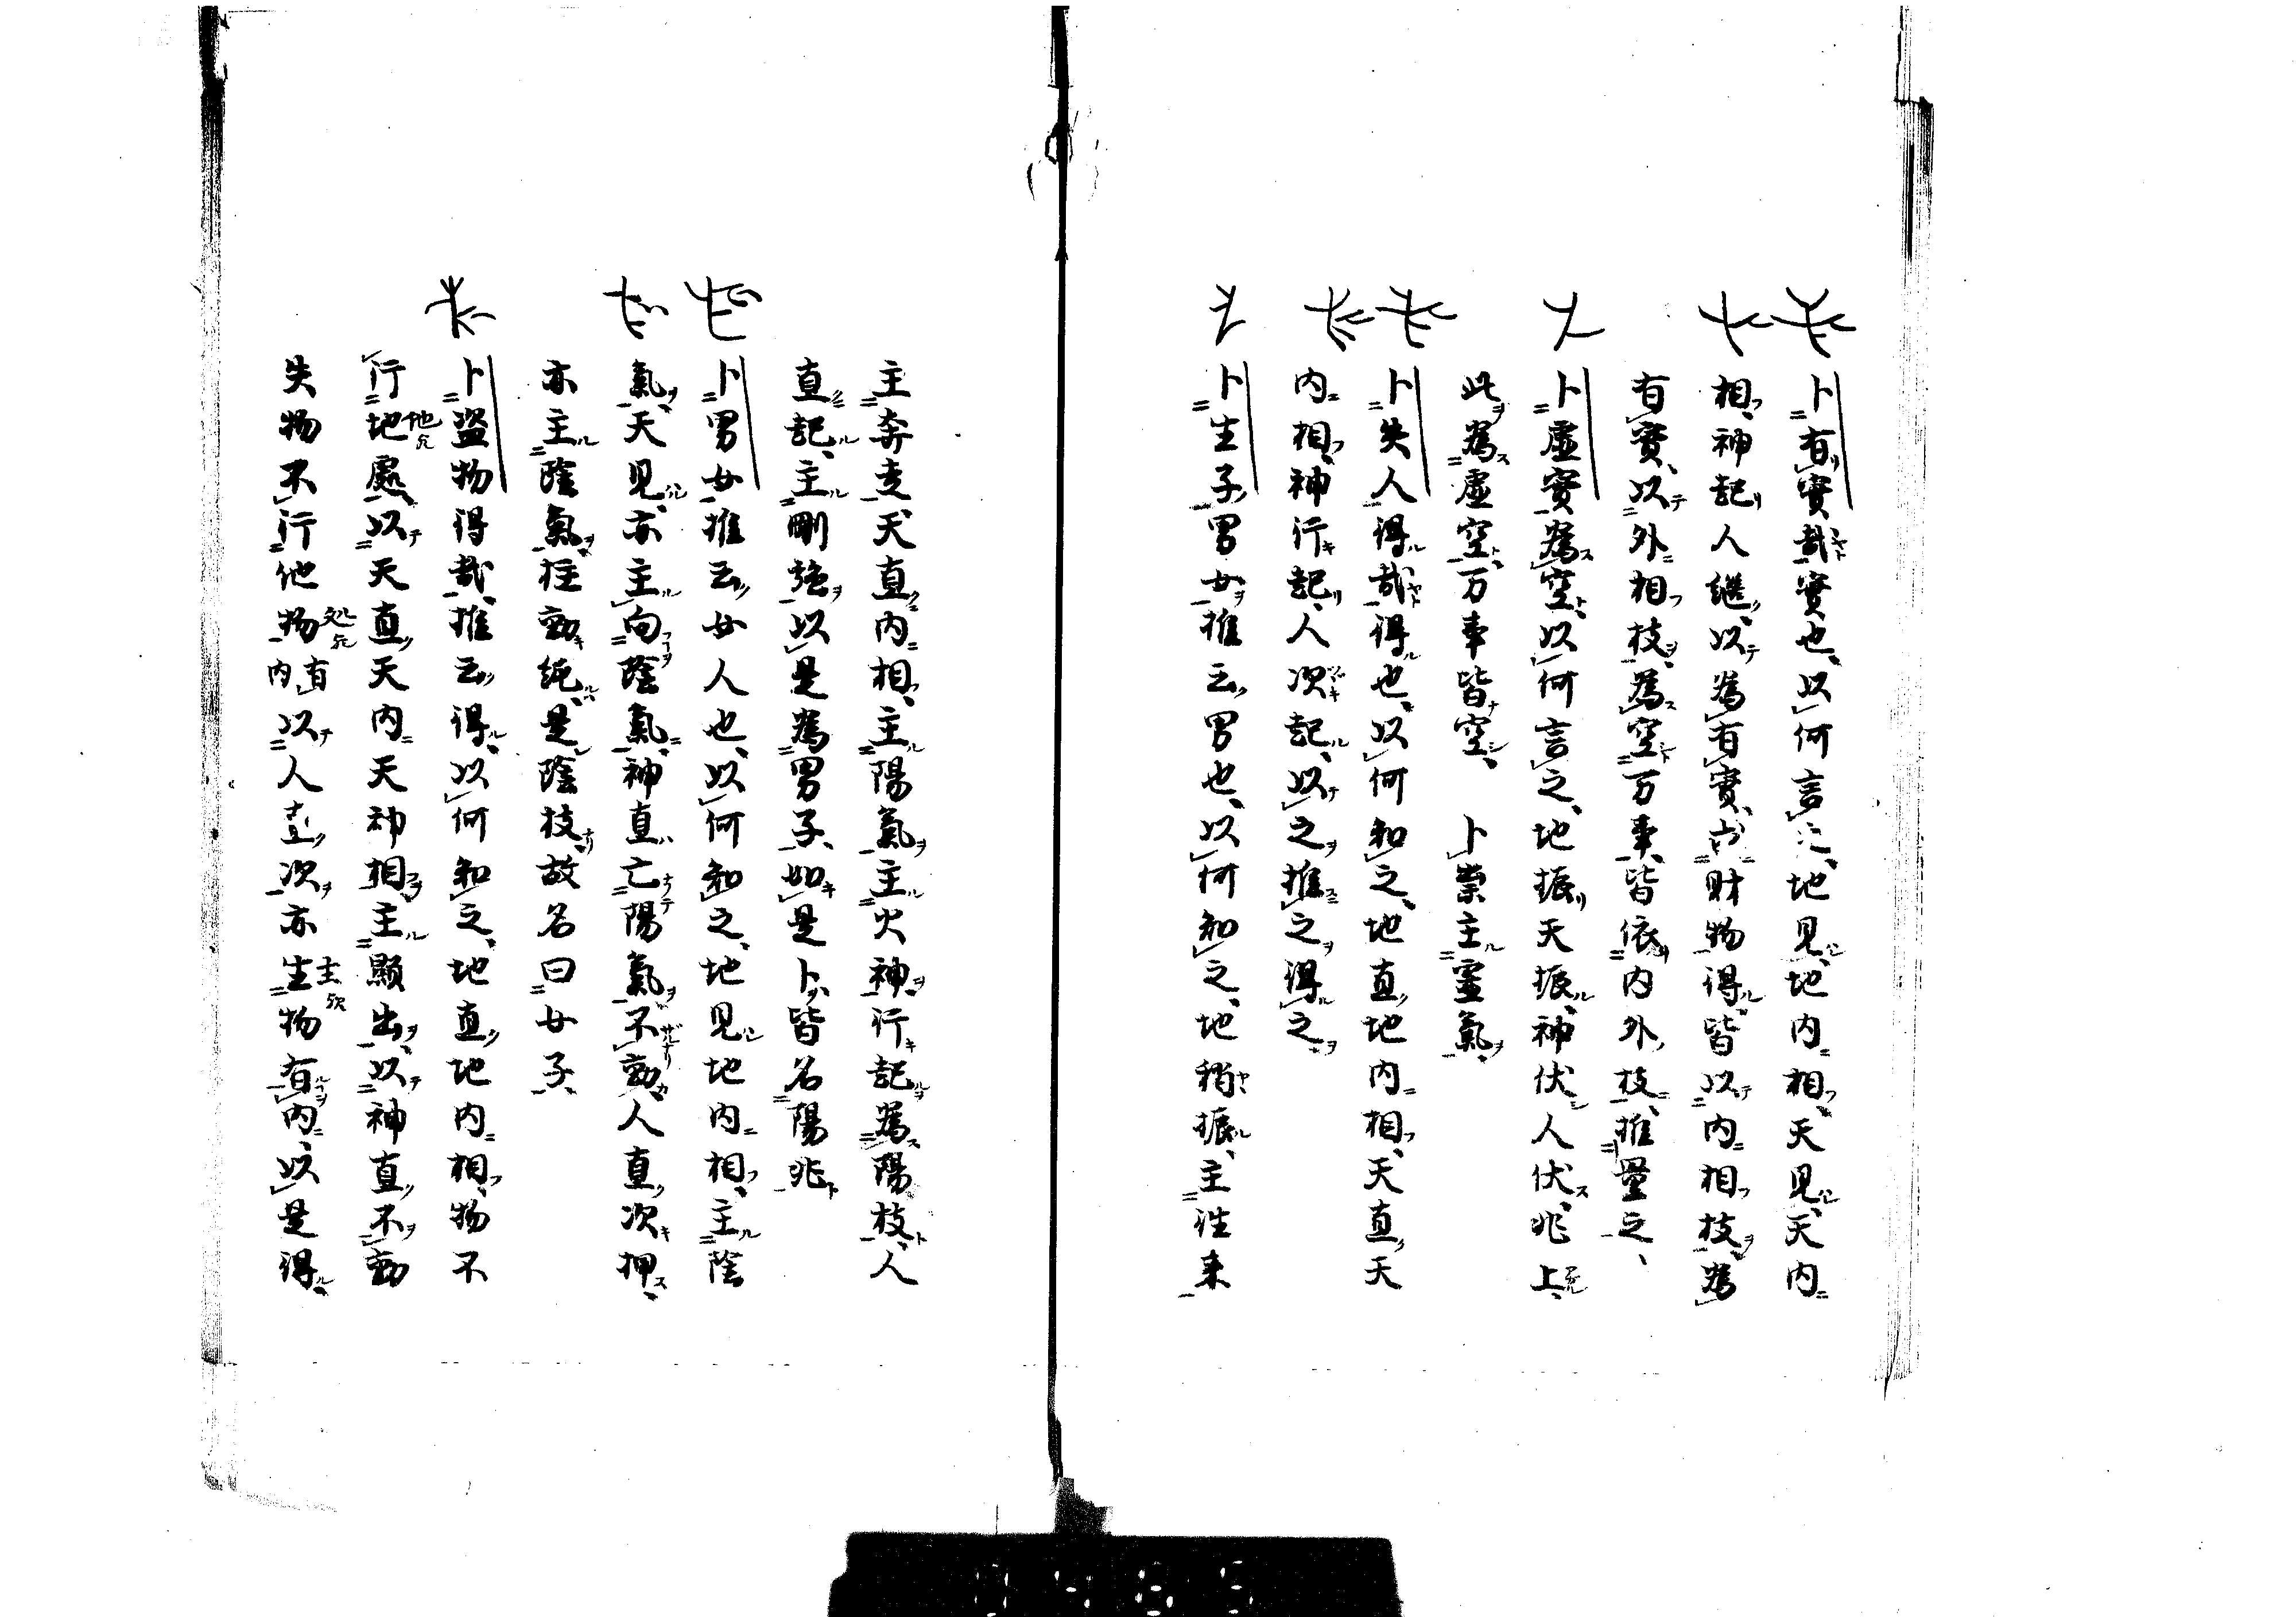 卜有實哉實也以何言之地見地内相天見天内
相神記人継以為有實亦財物得皆以内相枝為
有實以外相枝為空万事皆依内外枝推量之
卜虚實為空以何言之地振天振神伏人伏兆上
此為虚空万事皆空　卜祟主霊氣
卜失人得哉得也以何知之地直地内相天直天
内相神行記人次記以之推之得之
卜生子男女推云男也以何知之地稍振主往来
主奔走天直内相主陽氣主火神行記為陽枝人
直記主剛強以是為男子如是卜皆名陽兆
卜男女推云女人也以何知之地見地内相主陰
氣天見亦主向陰氣神直亡陽氣不動人直次押
亦主陰氣狂動純是陰枝故名曰女子
卜盗物得哉推云得以何知之地直地内相物不
行地處以天直天内天神相主顯出以神直不動
失物不行他物内有以人直次亦生物有内以是得